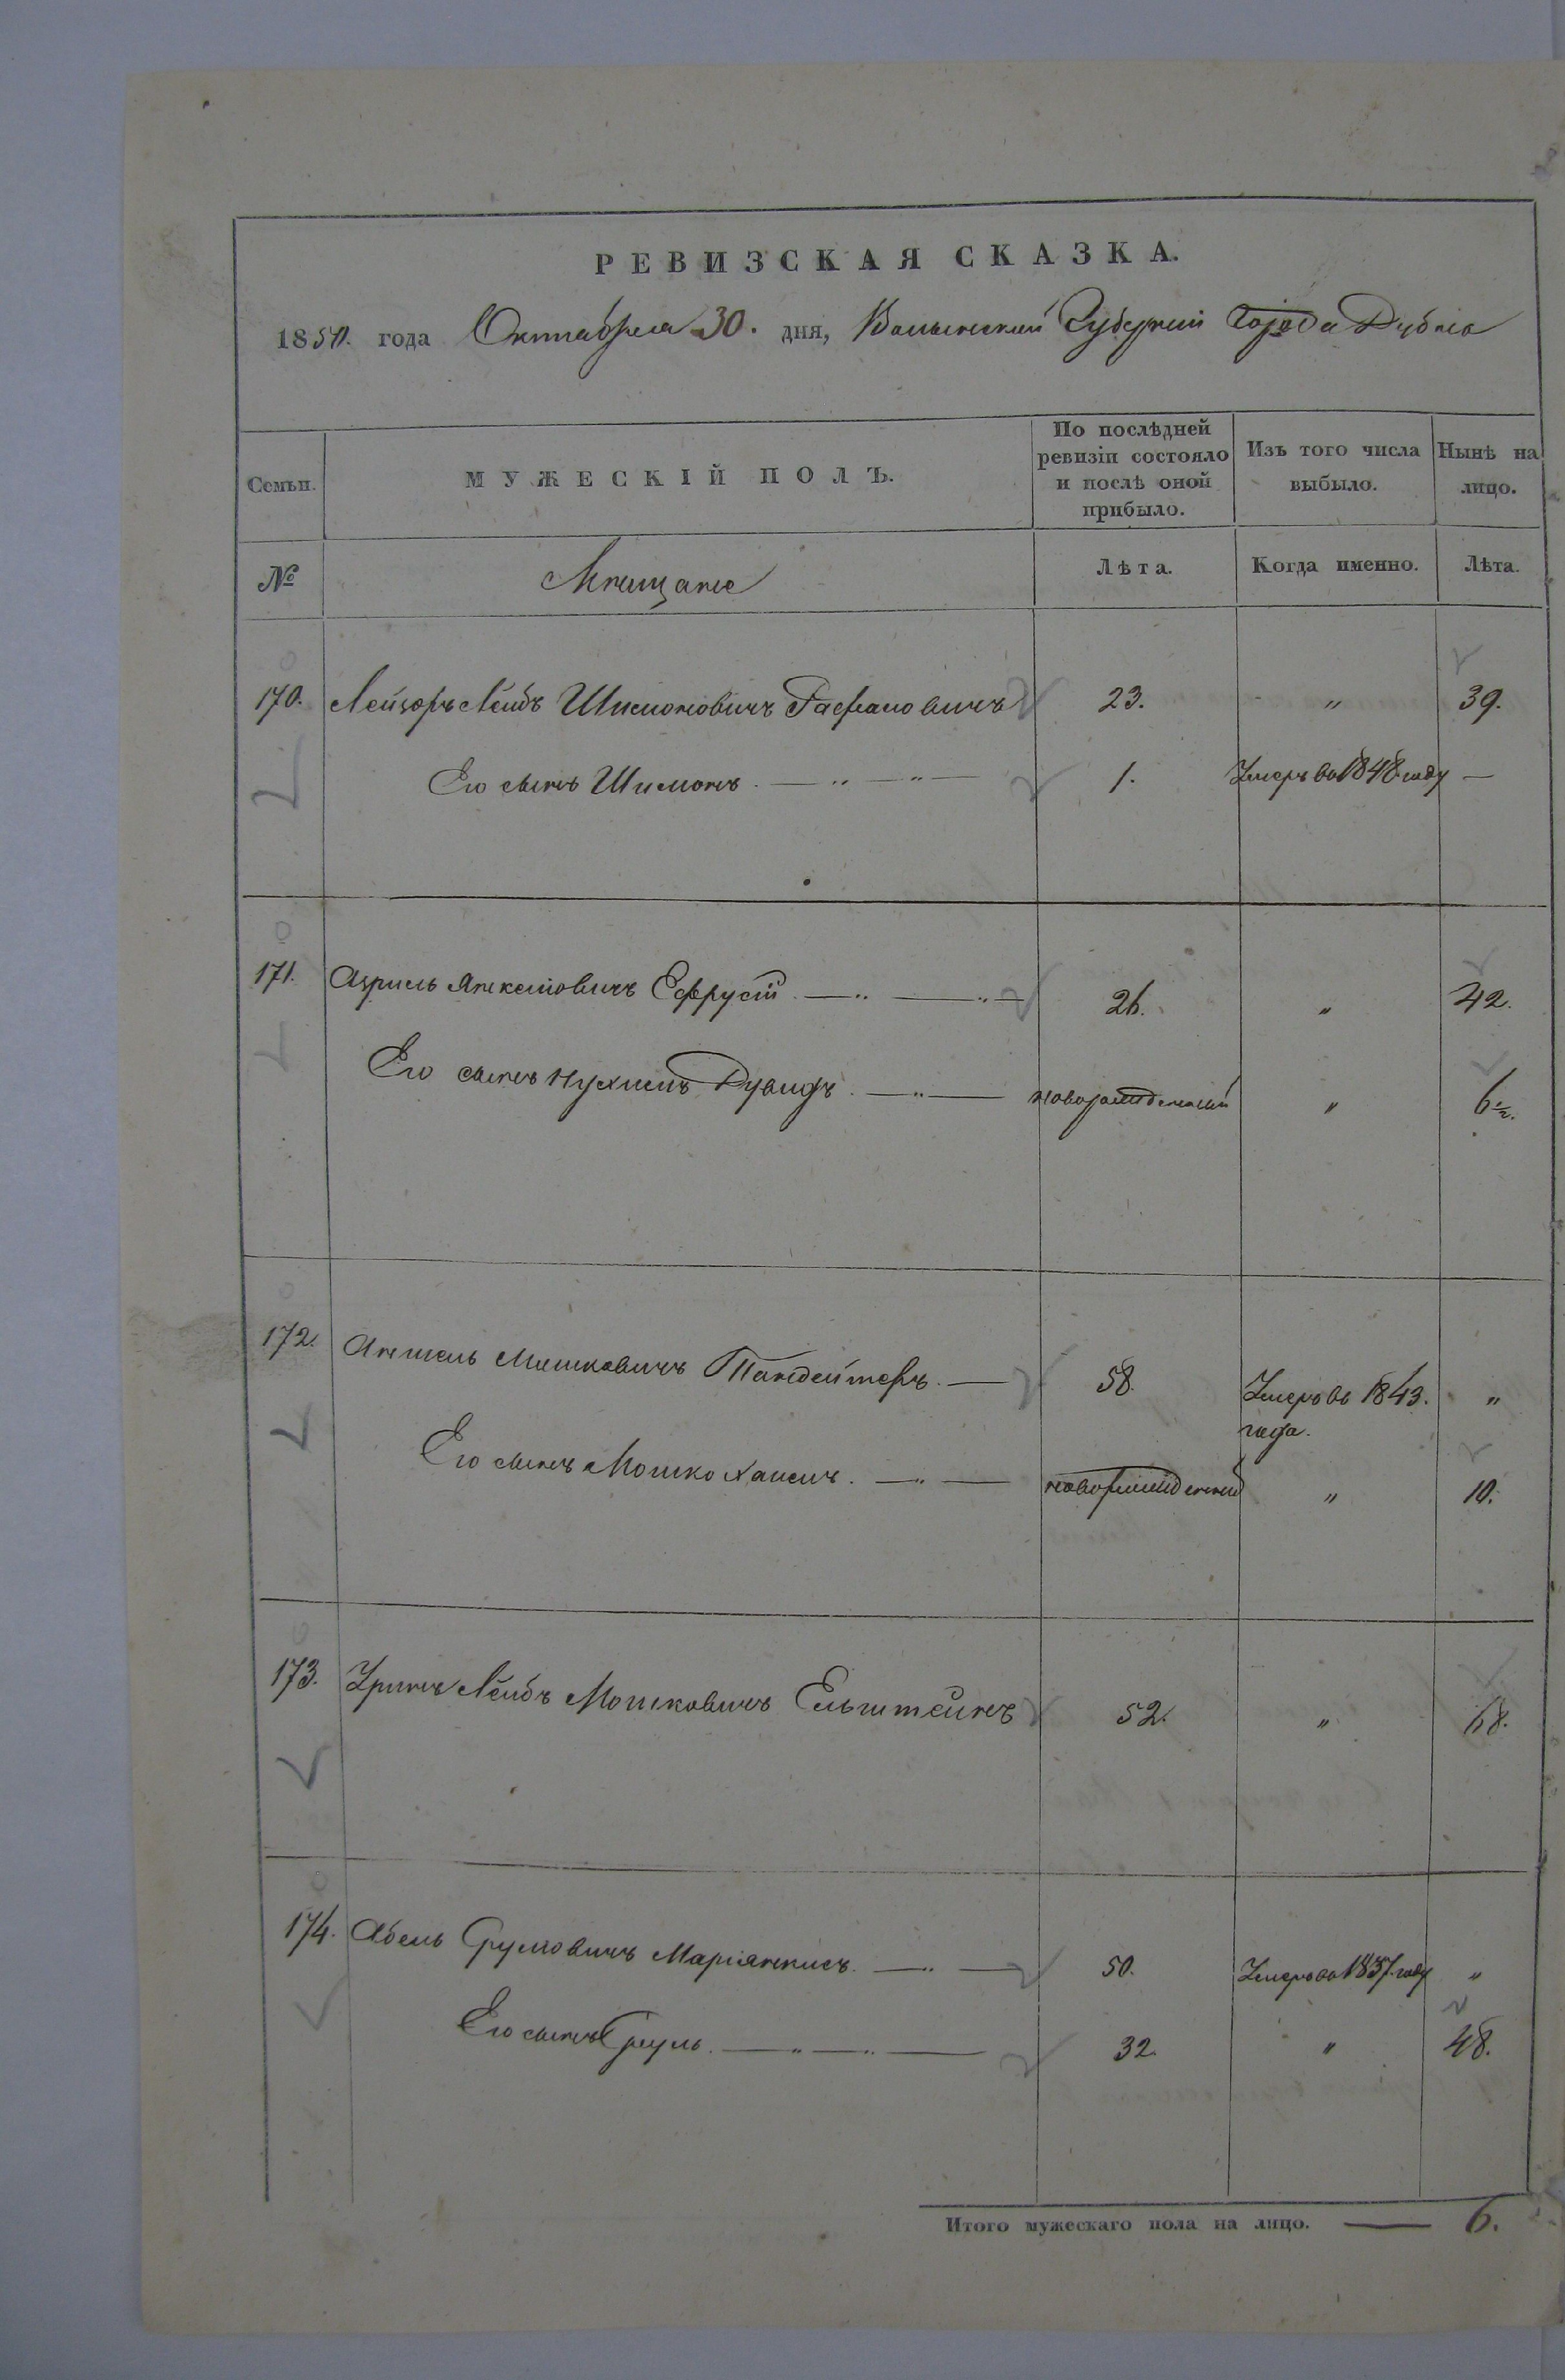 РЕВИЗСКАЯ СКАЗКА.
1850. года Октября 30. дня, Волынской Губернии Города Дубно
Семьи. МУЖЕСКІЙ ПОЛЪ. По послѣдней ревизіи состояло и послѣ оной прибыло. Изъ того числа выбыло. Нынѣ на лицо.
№ Мещане Лѣта. Когда именно. Лѣта.
170. Лейзоръ Лейбъ Шимоновичъ 23. " 39.
Его сынъ Шимонъ. — " — " — 1. Умеръ въ 1848 году —
171. Азриль Янкелiовичъ Ефрусiй. — " — " — 26. " 42.
Его сынъ Нухимъ Дувидъ. — " — новорожденный " 6 1/2.
172. Аншель Мошковичъ Тандейтеръ. — 58. Умеръ въ 1843. "
года.
Его сынъ Мошко Хаимъ. — " — новорожденный " 10.
173. Лейбъ Мошковичъ Ельштейнъ 52. " 68.
174. Абель Срулiовичъ Марiянкисъ. — " — 50. Умеръ въ 1837. году "
Его сынъ Сруль. — " — " — 32. " 48.
Итого мужескаго пола на лицо. — 6.